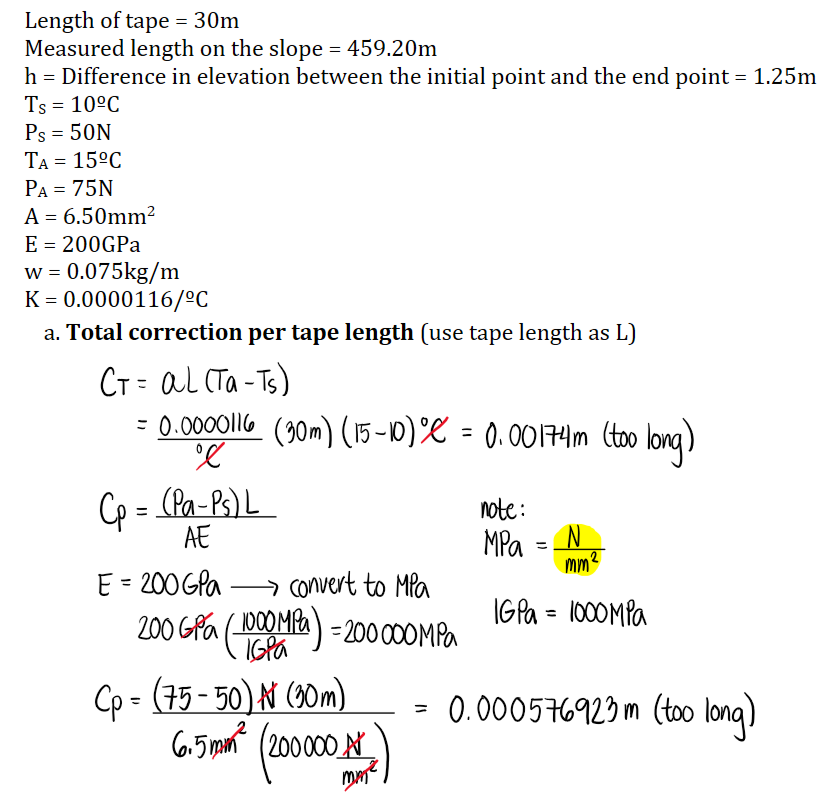 Length of tape = 30m
Measured length on the slope = 459.20m
h = Difference in elevation between the initial point and the end point = 1.25m
Ts = 10ºC
Ps = 50N
TA = 15ºC
PA = 75N
A = 6.50mm²
E = 200GPa
w = 0.075kg/m
K = 0.0000116/ºC
a. Total correction per tape length (use tape length as L)
CT = αL(Ta - Ts)
= 0.0000116/°C (30m) (15-10)°C = 0.00174m (too long)
Cp = (Pa-Ps)L / AE
note:
MPa = N/mm²
E = 200GPa → convert to MPa
1GPa = 1000MPa
200 GPa (1000MPa / 1GPa) = 200000MPa
Cp = (75-50)N (30m) / 6.5mm² (200000 N/mm²) = 0.000576923m (too long)